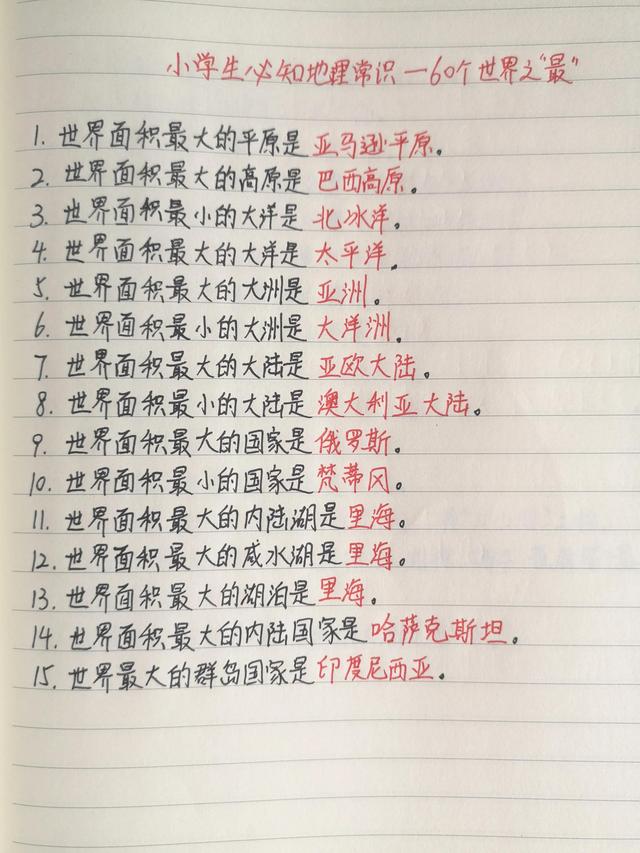 小学生必知地理常识—60个世界之"最"
1. 世界面积最大的平原是亚马逊平原。
2. 世界面积最大的高原是巴西高原。
3. 世界面积最小的大洋是北冰洋。
4. 世界面积最大的大洋是太平洋。
5. 世界面积最大的大洲是亚洲。
6. 世界面积最小的大洲是大洋洲。
7. 世界面积最大的大陆是亚欧大陆。
8. 世界面积最小的大陆是澳大利亚大陆。
9. 世界面积最大的国家是俄罗斯。
10. 世界面积最小的国家是梵蒂冈。
11. 世界面积最大的内陆湖是里海。
12. 世界面积最大的咸水湖是里海。
13. 世界面积最大的湖泊是里海。
14. 世界面积最大的内陆国家是哈萨克斯坦。
15. 世界最大的群岛国家是印度尼西亚。